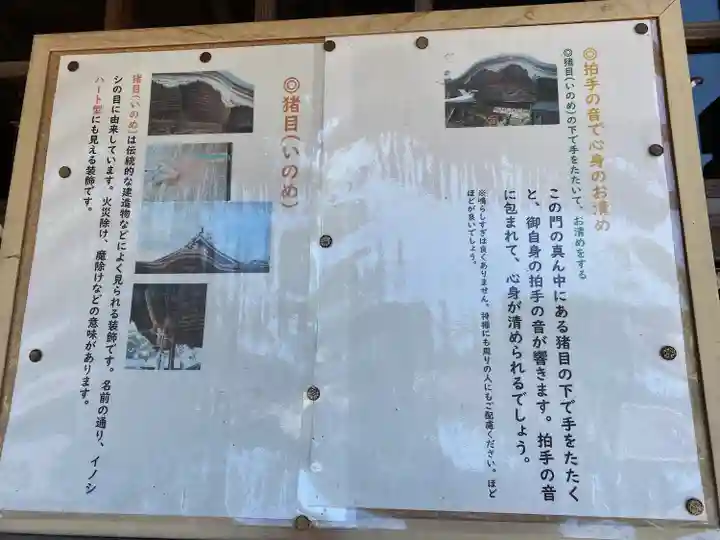 ◎拍手の音で心身のお清め
◎猪目(いのめ)の下で手をたたいて、お清めをする
この門の真ん中にある猪目の下で手をたたく
と、御自身の拍手の音が響きます。拍手の音
に包まれて、心身が清められるでしょう。
※鳴らしすぎは良くありません。神様にも周りの人にもご配慮ください。ほど
ほどが良いでしょう。
◎猪目(いのめ)
猪目(いのめ)は伝統的な建造物などによく見られる装飾です。名前の通り、イノシ
シの目に由来しています。火災除け、魔除けなどの意味があります。
ハート型にも見える装飾です。